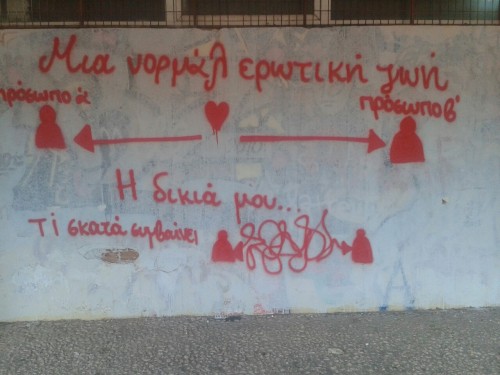 Μια νορμάλ ερωτική ζωή
πρόσωπο ά
πρόσωπο β'
Η δικιά μου...
Τί σκατά συμβαίνει